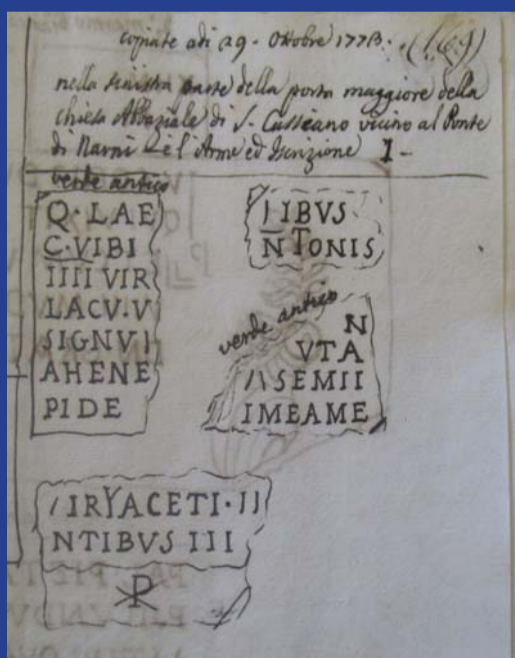 copiate adi 29. Ottobre 1773. (169)
nella sinistra parte della porta maggiore della
chiesa Abbaziale di S. Cassiano vicino al Ponte
di Narni è l'Arme ed Iscrizione I-
verde antico
Q·LAE
C·VIBI
IIII VIR
LACV·V
SIGNVI
AHENE
PIDE
IIBVS
NTONIS
verde antico
N
VTA
SEMII
IMEAME
IRYACETI·II
NTIBVS III